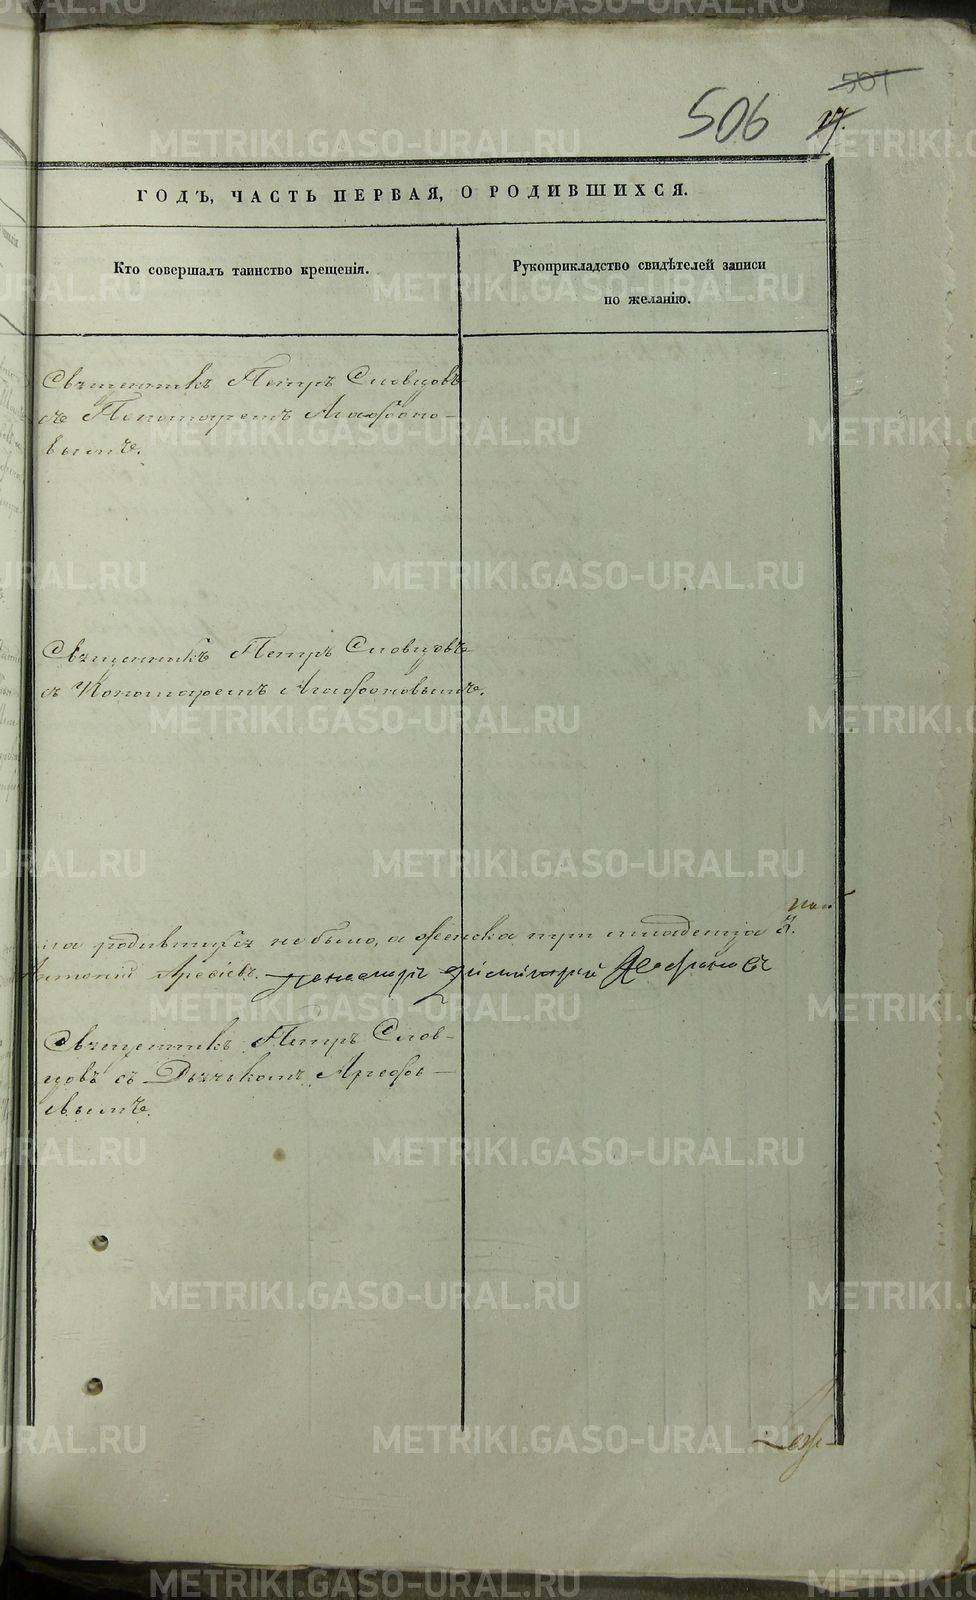 501
506 27.
ГОДЪ, ЧАСТЬ ПЕРВАЯ, О РОДИВШИХСЯ.
Кто совершалъ таинство крещенія.
Рукоприкладство свидѣтелей записи
по желанію.
Священникъ Петръ Словцовъ
съ Пономаремъ Агафоно-
вымъ.
Священникъ Петръ Словцовъ
съ Пономаремъ Агафоновымъ.
родившихся не было, а женска младенца 2.
Пономарь Димитрій Агафоновъ
Священникъ Петръ Слов-
цовъ съ Дьячкомъ Арефь-
евымъ.
METRIKI.GASO-URAL.RU